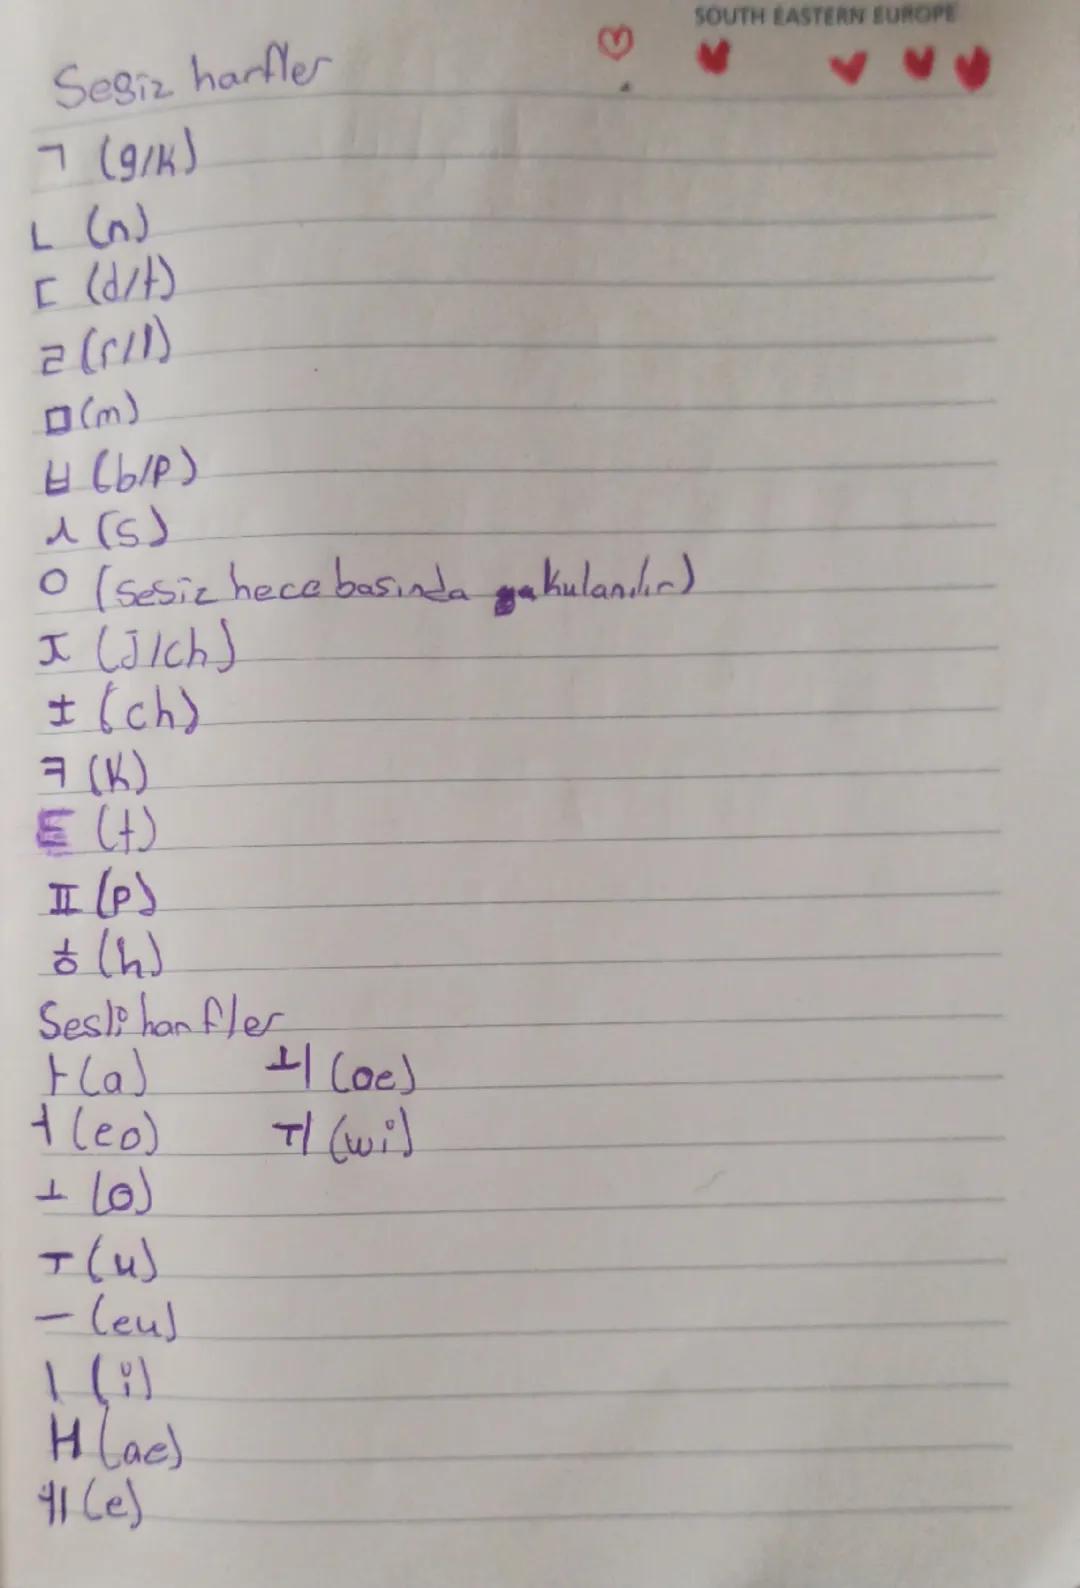 SOUTH EASTERN EUROPE
Sesiz harfler
ㄱ (g/k)
ㄴ (n)
ㄷ (d/t)
ㄹ (r/l)
ㅁ (m)
ㅂ (b/p)
ㅅ (s)
ㅇ (sesiz hece basında kulanılır)
ㅈ (J/ch)
ㅊ (ch)
ㅋ (k)
ㅌ (t)
ㅍ (p)
ㅎ (h)
Sesli harfler
ㅏ (a) ㅚ (oe)
ㅓ (eo) ㅟ (wi)
ㅗ (o)
ㅜ (u)
ㅡ (eu)
ㅣ (i)
ㅐ (ae)
ㅔ (e)